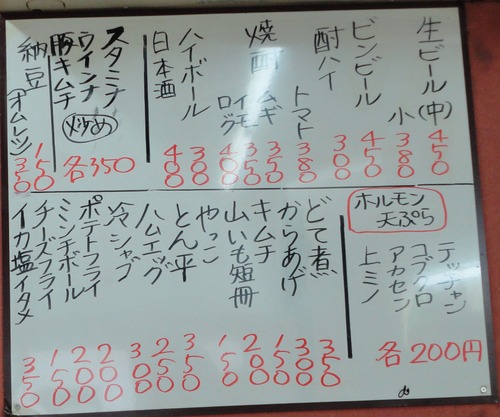 生ビール(中) 450
小 380
ビンビール 450
酎ハイ 300
トマト 380
焼酎 ムギ 350
イモ 350
ロック 400
ハイボール 300
日本酒 400
スタミナ
ウインナ
豚キムチ
炒め 各350
納豆 150
(オムレツ) 350
ホルモン
天ぷら
テッチャン
コブクロ
アカセン
上ミノ
各200円
どて煮 350
からあげ 300
キムチ 150
山いも短冊 200
やっこ 150
とん平 350
ハムエッグ 250
冷シャブ 300
ポテトフライ 200
ミンチボール 200
チーズフライ 150
イカ塩イタメ 350